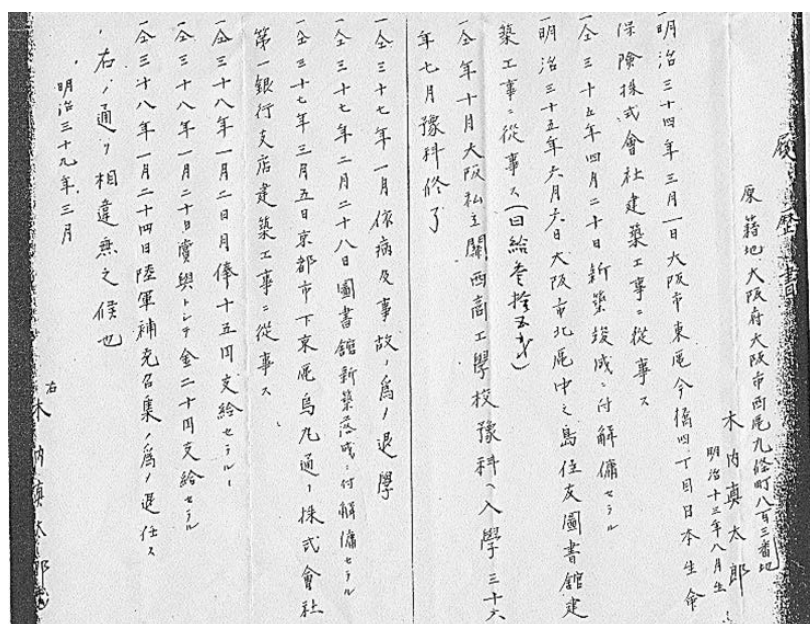 履歴書
原籍地 大阪府大阪市西區九條町八百三番地
木内真太郎
明治十三年八月生
一明治三十四年三月一日大阪市東區今橋四丁目日本生命
保險株式會社建築工事ニ從事ス
一仝三十五年四月二十日新築竣成ニ付解傭セラル
一明治三十五年六月六日大阪市北區中之島住友圖書館建
築工事ニ從事ス(日給叁拾五戔)
一仝年十月大阪私立關西商工學校豫科ヘ入學三十六
年七月豫科修了
一仝三十七年一月依病及事故ノ爲ノ退學
一仝三十七年二月二十八日圖書館新築落成ニ付解傭セラル
一仝三十七年三月五日京都市下京區烏丸通リ株式會社
第一銀行支店建築工事ニ從事ス
一仝三十八年一月二日月俸十五円支給セラル
一仝三十八年一月二十日賞與トシテ金二十円支給セラル
一仝三十八年一月二十四日陸軍補充召集ノ爲ノ退任ス
右ノ通リ相違無之候也
明治三十九年三月
右 木内真太郎